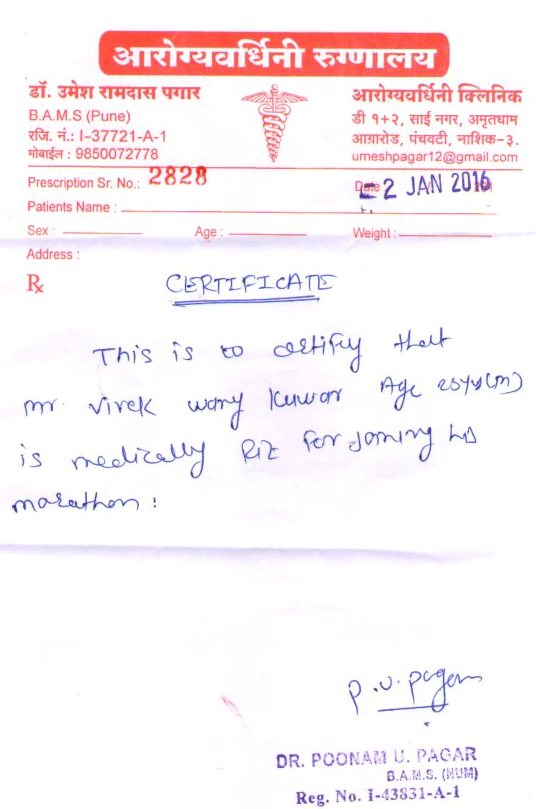 आरोग्यवर्धिनी रुग्णालय
डॉ. उमेश रामदास पगार
B.A.M.S (Pune)
रजि. नं.: I-37721-A-1
मोबाईल : 9850072778
आरोग्यवर्धिनी क्लिनिक
डी १+२, साई नगर, अमृतधाम
आग्रारोड, पंचवटी, नाशिक-३.
umeshpagar12@gmail.com
Prescription Sr. No.: 2828
Date 2 JAN 2016
Patients Name :
Sex : Age : Weight :
Address :
Rx
CERTIFICATE
This is to certify that
mr. vivek Kuwar Age 25yrs(m)
is medically for joining
marathon.
P.U. Pagar
DR. POONAM U. PAGAR
B.A.M.S. (NUM)
Reg. No. I-43831-A-1